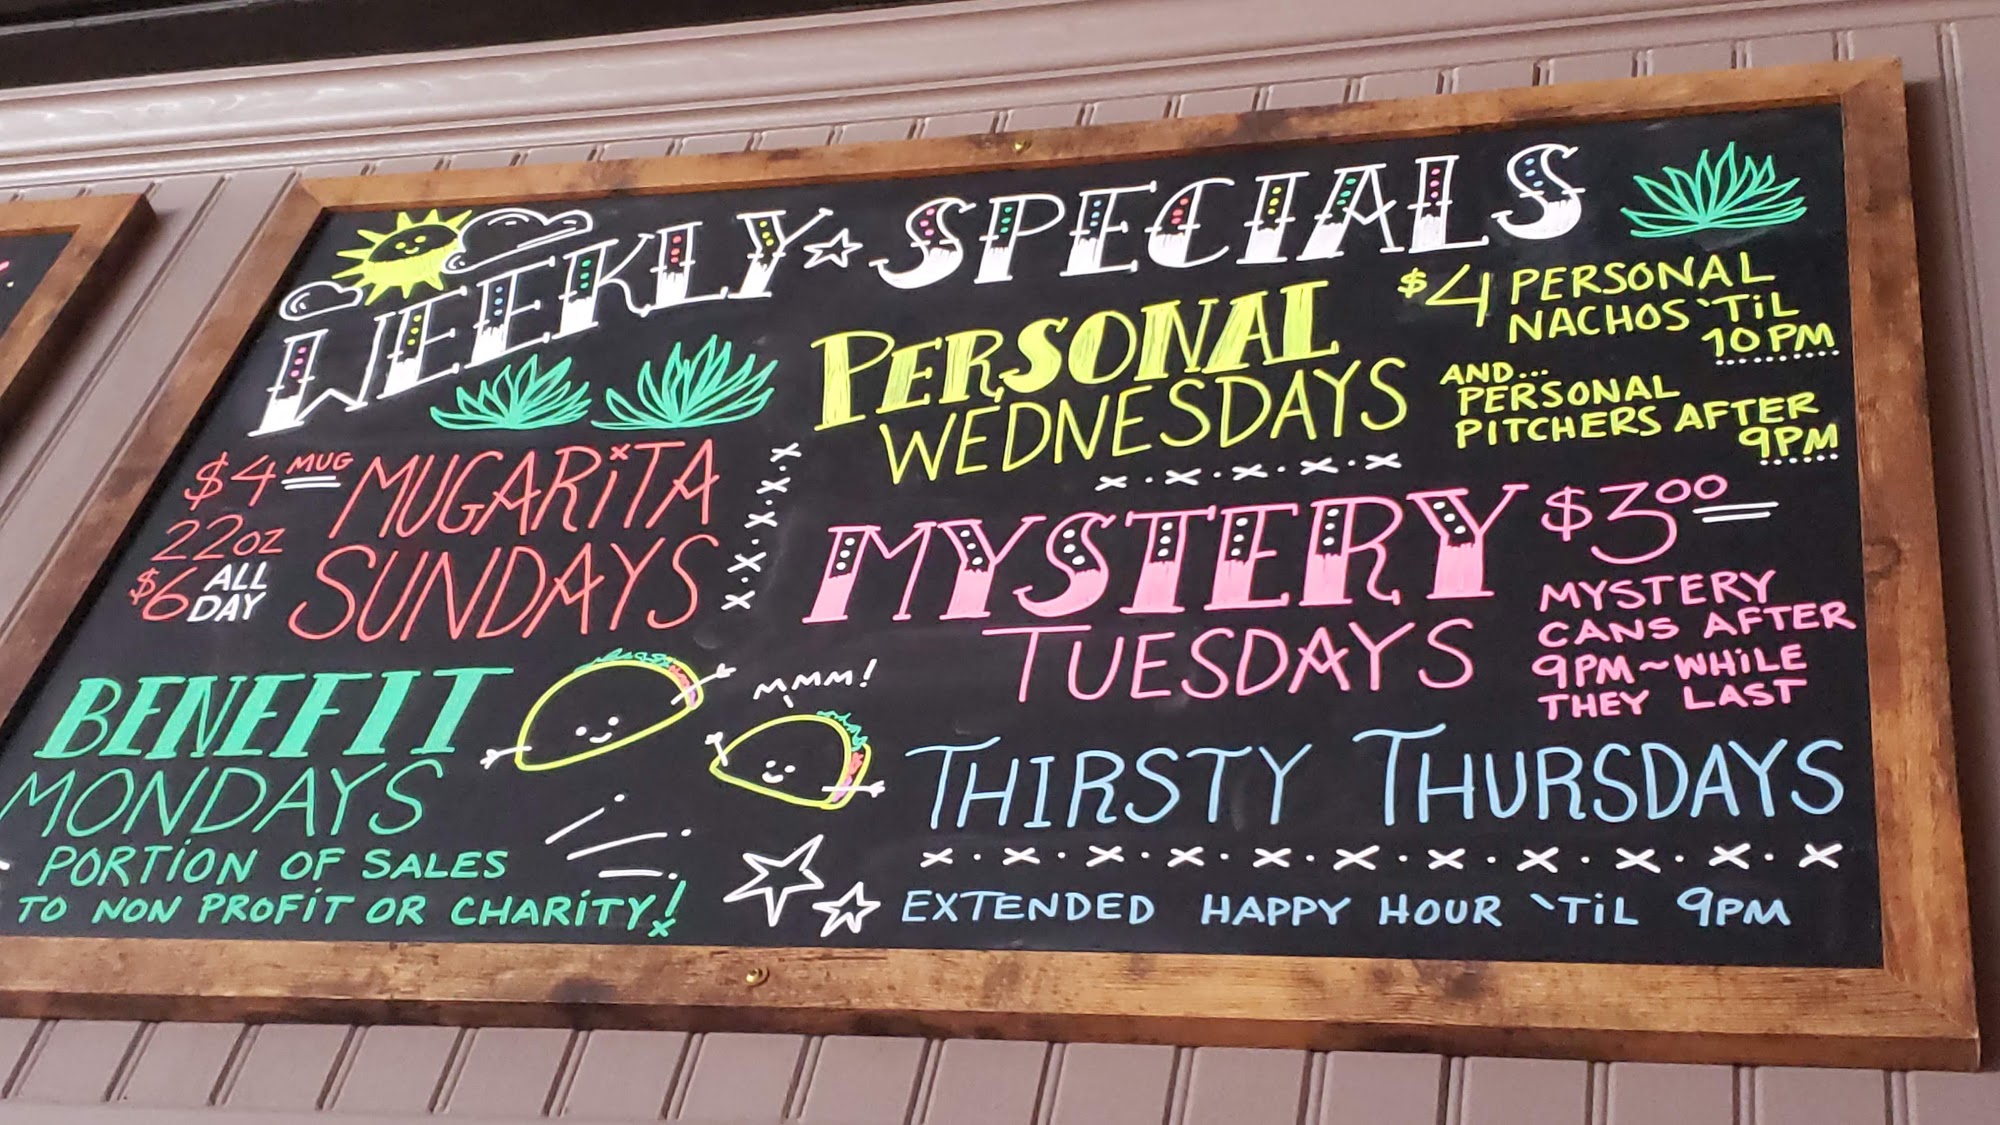 WEEKLY SPECIALS
$4 MUG MUGARITA
22OZ SUNDAYS
$6 ALL DAY
BENEFIT
MONDAYS
PORTION OF SALES
TO NON PROFIT OR CHARITY!
MMM!
PERSONAL
WEDNESDAYS
$4 PERSONAL
NACHOS 'TIL
10PM
AND...
PERSONAL
PITCHERS AFTER
9PM
MYSTERY
TUESDAYS
$3.00
MYSTERY
CANS AFTER
9PM~WHILE
THEY LAST
THIRSTY THURSDAYS
EXTENDED HAPPY HOUR 'TIL 9PM